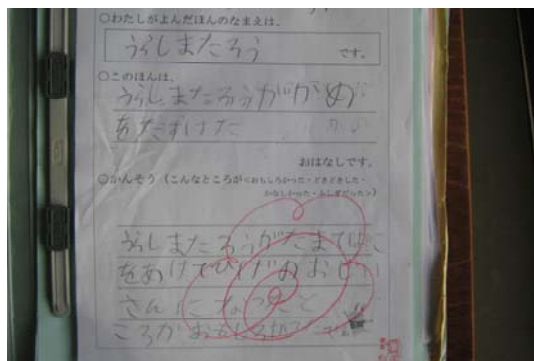 ○わたしがよんだほんのなまえは、
うらしまたろう
です。
○このほんは、
うらしまたろうがかめ
をたすけた
おはなしです。
○かんそう（こんなところが＜おもしろかった・どきどきした・
かなしかった・ふしぎだった＞）
うらしまたろうがたまてばこ
をあけてひげのおじい
さんになったと
ころがおもしろかったです